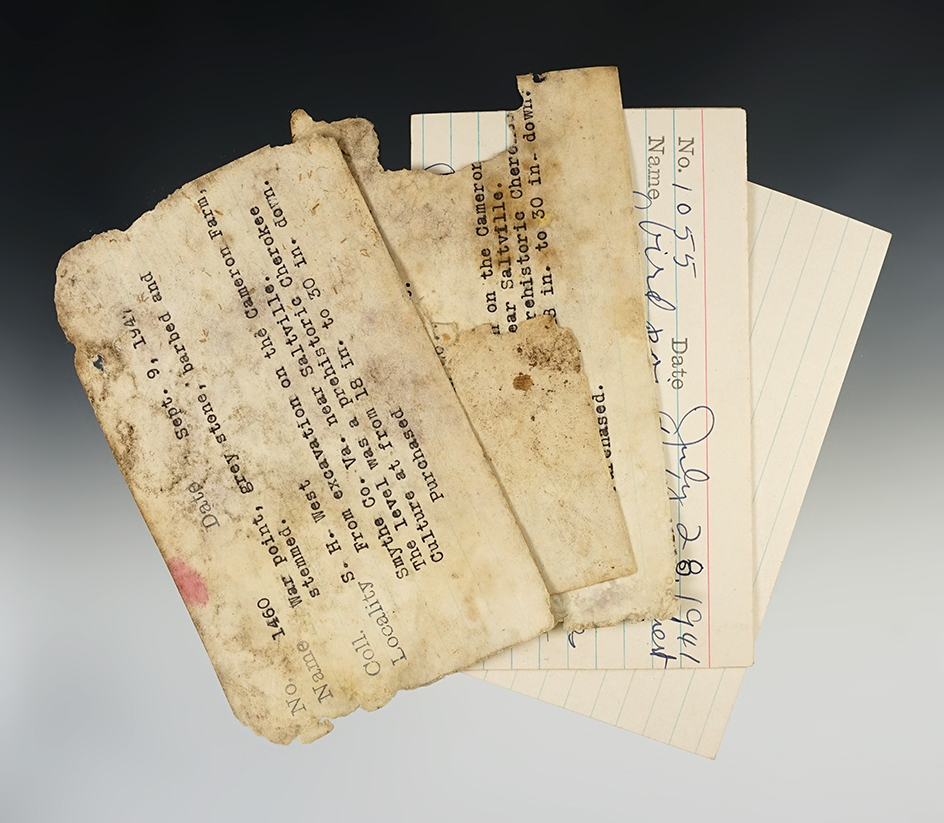 No. 1460 Date Sept. 9, 1941
Name war point, grey stone, barbed and
stemmed.
Coll. S. H. West
Locality From excavation on the Cameron Farm,
Smythe Co. Va. near Saltville.
The level was a prehistoric Cherokee
Culture at from 18 in. to 30 in. down.
Purchased
on the Cameron
ear Saltville.
rehistoric Chero
8 in. to 30 in. down.
No. 1055 Date July 28, 1941
Name bird